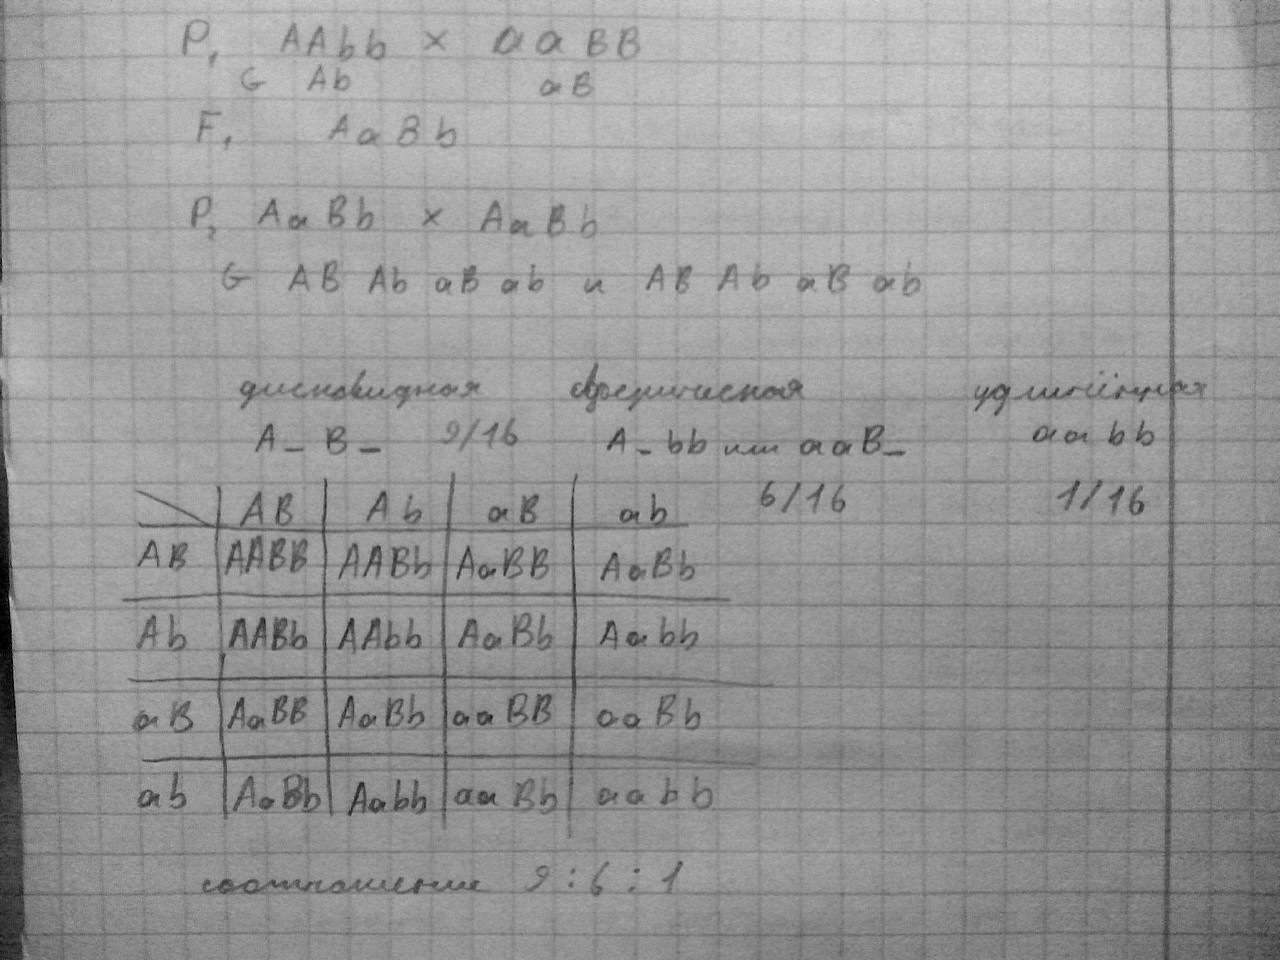 P₁ AAbb × aaBB
G Ab aB
F₁ AaBb
P₂ AaBb × AaBb
G AB Ab aB ab и AB Ab aB ab
дисковидная сферическая удлинённая
A_ B_ 9/16 A_bb или aaB_ aabb
6/16 1/16
AB Ab aB ab
AB AABB AABb AaBB AaBb
Ab AABb AAbb AaBb Aabb
aB AaBB AaBb aaBB aaBb
ab AaBb Aabb aaBb aabb
соотношение 9:6:1